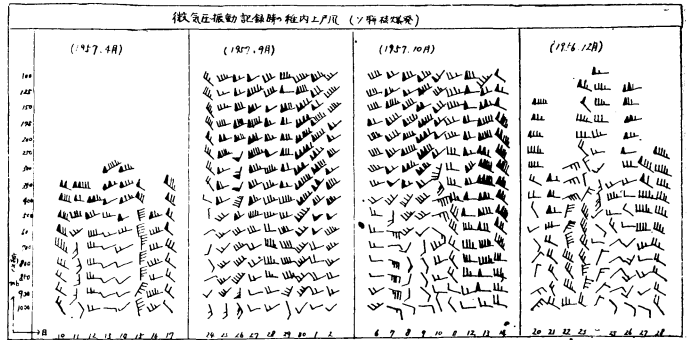 微気圧振動記録時の稚内上戸風 (ソ聯核爆発)
(1957.4月)
(1957.9月)
(1957.10月)
(1956.12月)
100
125
150
175
200
250
300
350
400
500
60
700
800
850
900
1000
mb
日
10 11 12 13 14 15 16 17
24 25 26 27 28 29 30 1 2
6 7 8 9 10 11 12 13 14
20 21 22 23 25 26 27 28